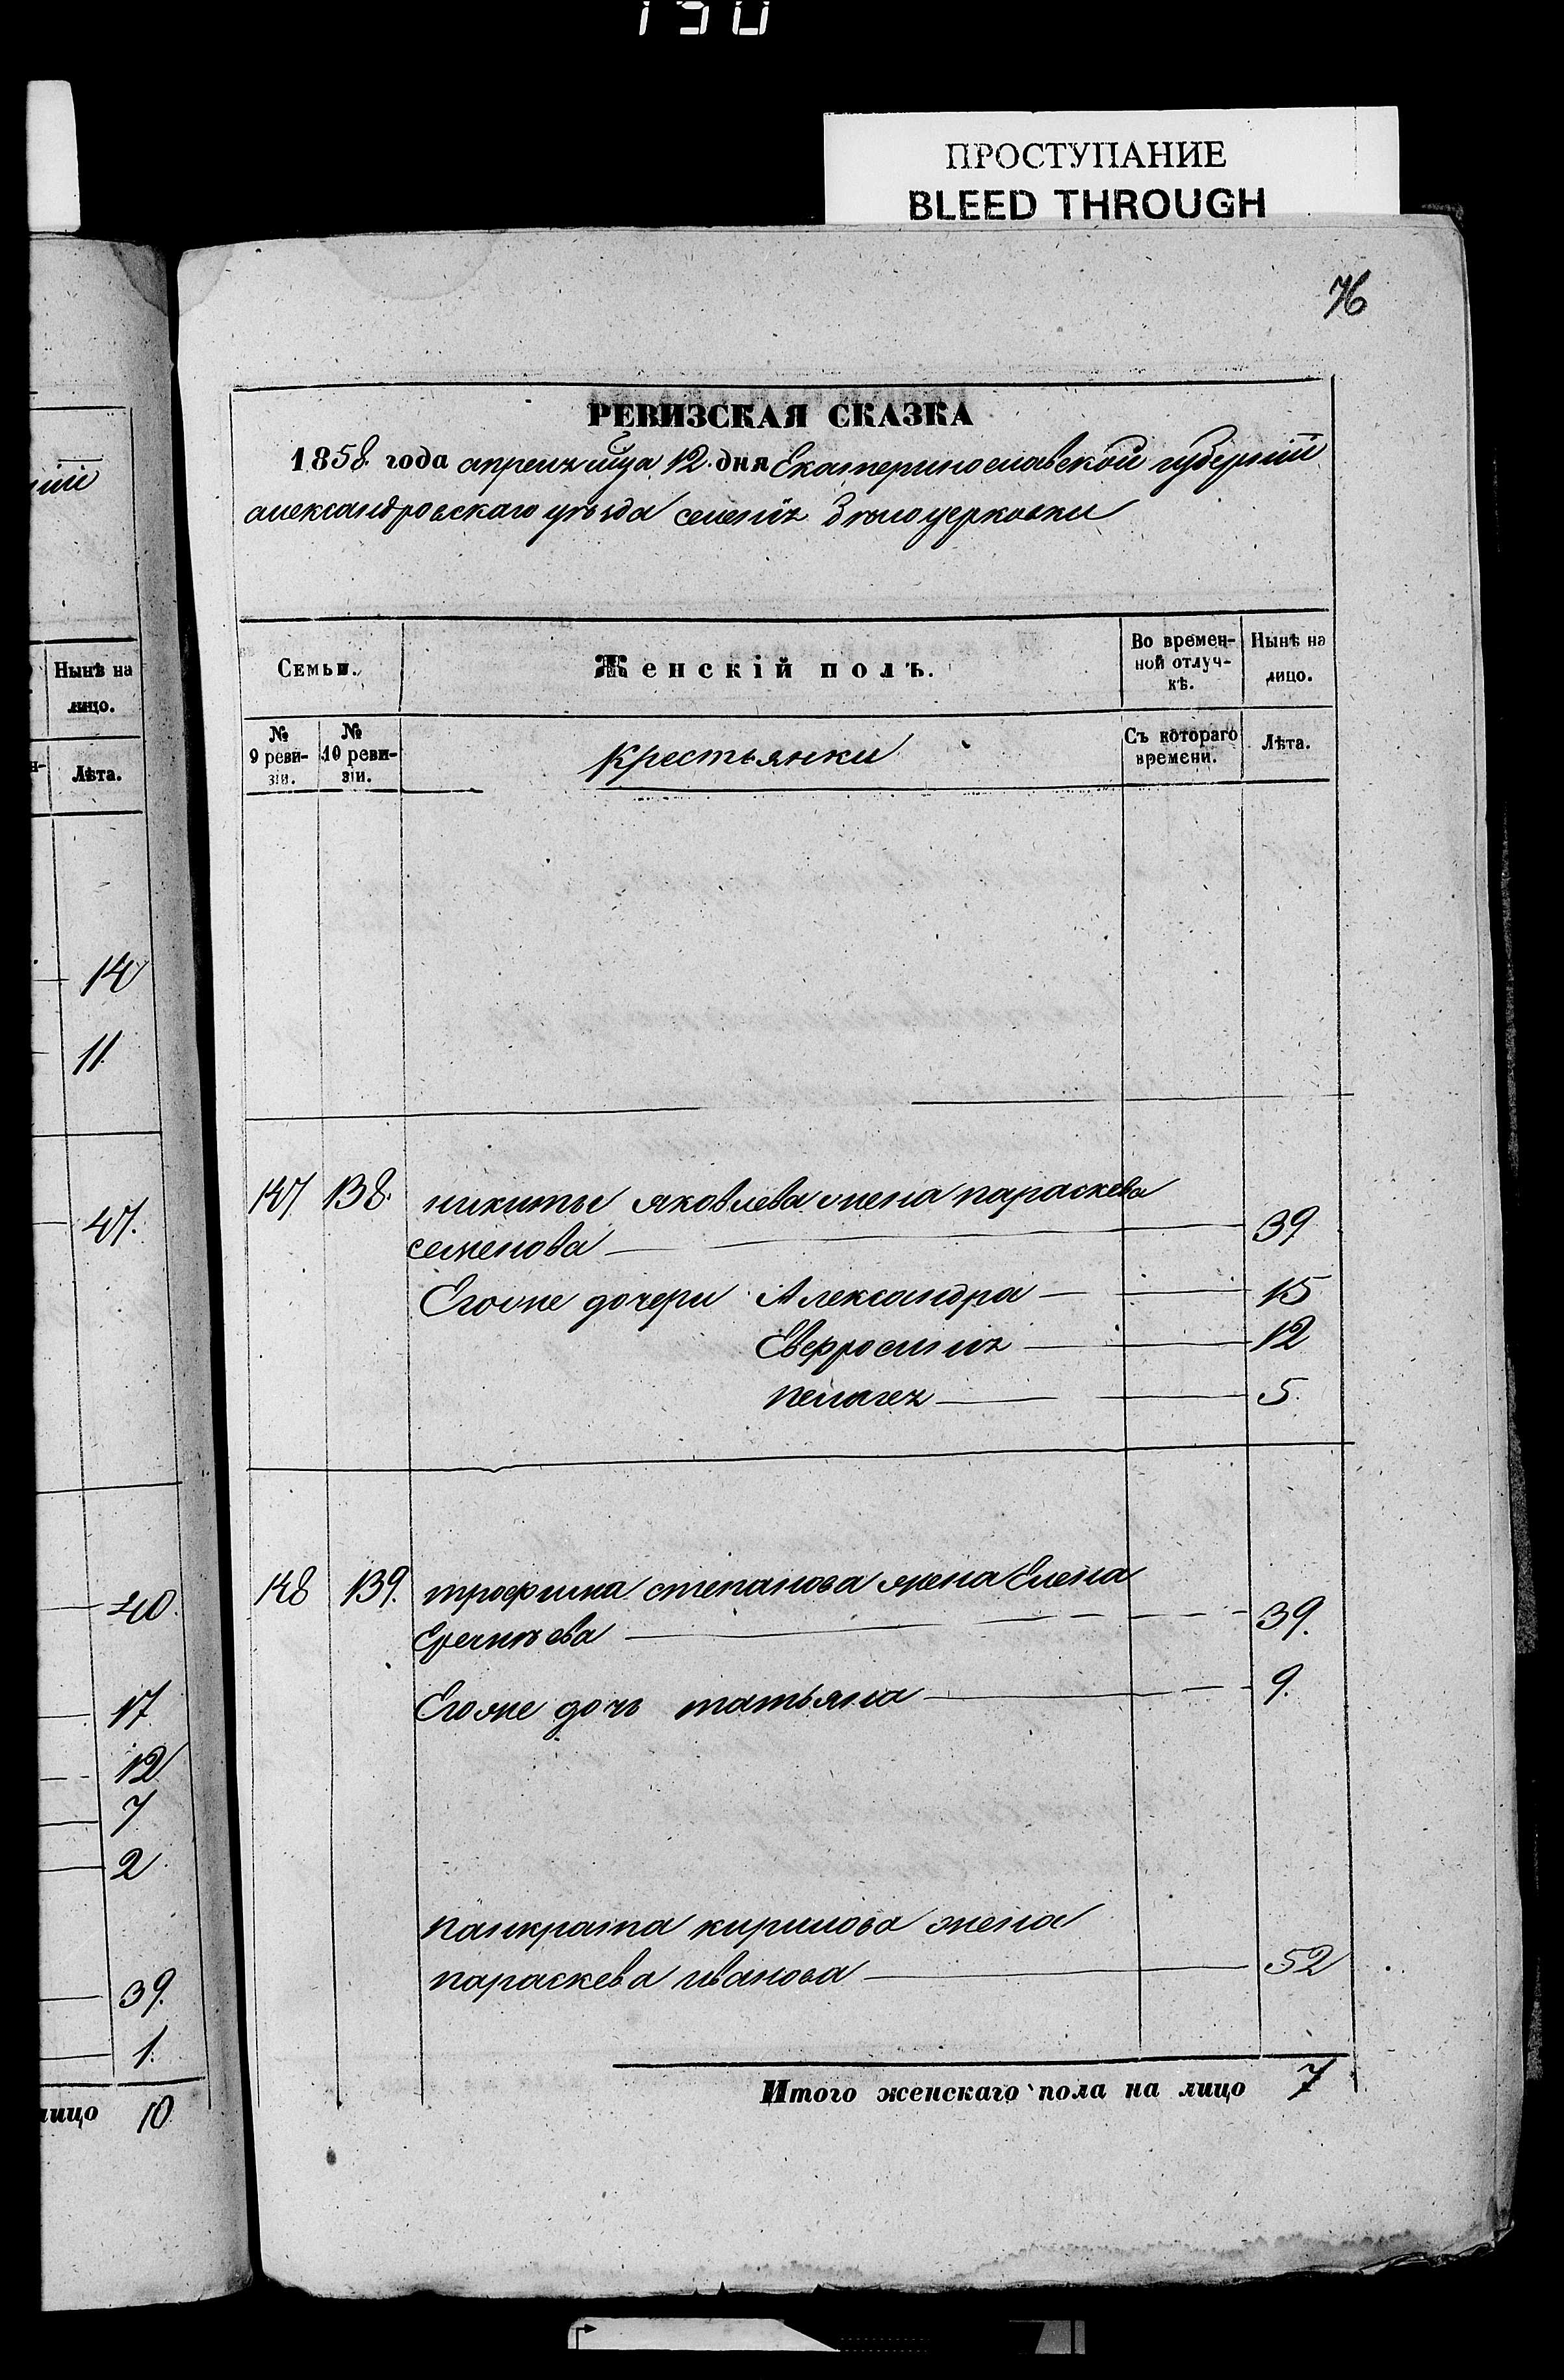 ПРОСТУПАНИЕ
BLEED THROUGH
76
РЕВИЗСКАЯ СКАЗКА
1858 года апреля мца 12 дня Екатеринославской губерніи
александровскаго уѣзда селенія Бѣлоцерковки
Семьи.
Женскій полъ.
Во времен-
ной отлуч-
кѣ.
Нынѣ на
лицо.
№
9 реви-
зіи.
№
10 реви-
зіи.
крестьянки
Съ котораго
времени.
Лѣта.
147 138. никиты яковлева жена параскева
семенова 39
Егоже дочери Александра 15
Евфросинія 12
пелагея 5.
148 139. трофима степанова жена Елена
39.
Егоже дочь татьяна 9.
панкрата кирилова жена
параскева иванова 52
Итого женскаго пола на лицо 7
ніи
Нынѣ на
лицо.
Лѣта.
14
11
47.
40.
17
12
7
2
39.
1.
лицо 10